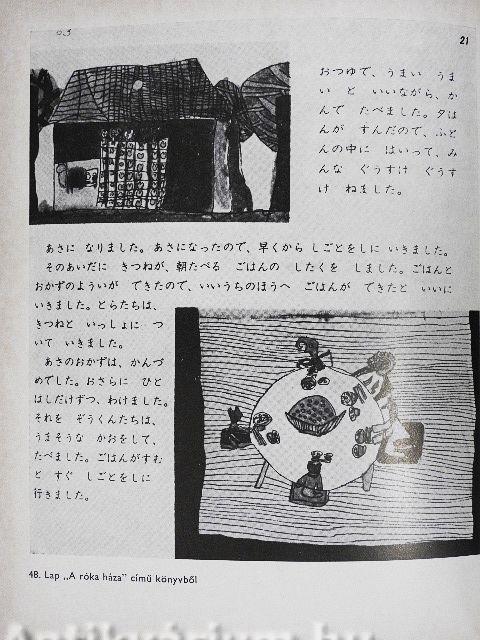 21
おつゆで、うまい うま
い と いいながら、か
んで たべました。夕は
んが すんだので、ふと
んの中に はいって、み
んな ぐうすけ ぐうす
け ねました。
あさに なりました。あさになったので、早くから しごとをしに いきました。
そのあいだに きつねが、朝たべる ごはんの したくを しました。ごはんと
おかずのよういが できたので、いいうちのほうへ ごはんが できたと いいに
いきました。とらたちは、
きつねと いっしょに つ
いて いきました。
あさのおかずは、かんづ
めでした。おさらに ひと
はしだけずつ、わけました。
それを ぞうくんたちは、
うまそうな かおをして、
たべました。ごはんがすむ
と すぐ しごとをしに
行きました。
48. Lap „A róka háza" című könyvből
Antikvarium.hu